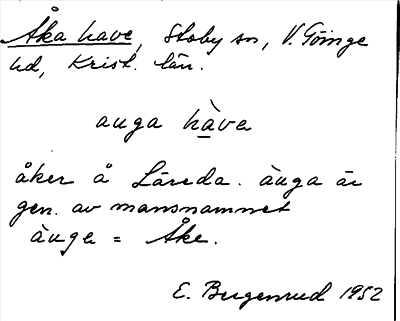 Åka have, Stoby sn, V. Göinge
hd, Krist. län.
auga hàva
åker å Läreda. àuga är
gen. av mansnamnet
àuge = Åke.
E. Bergenrud 1952